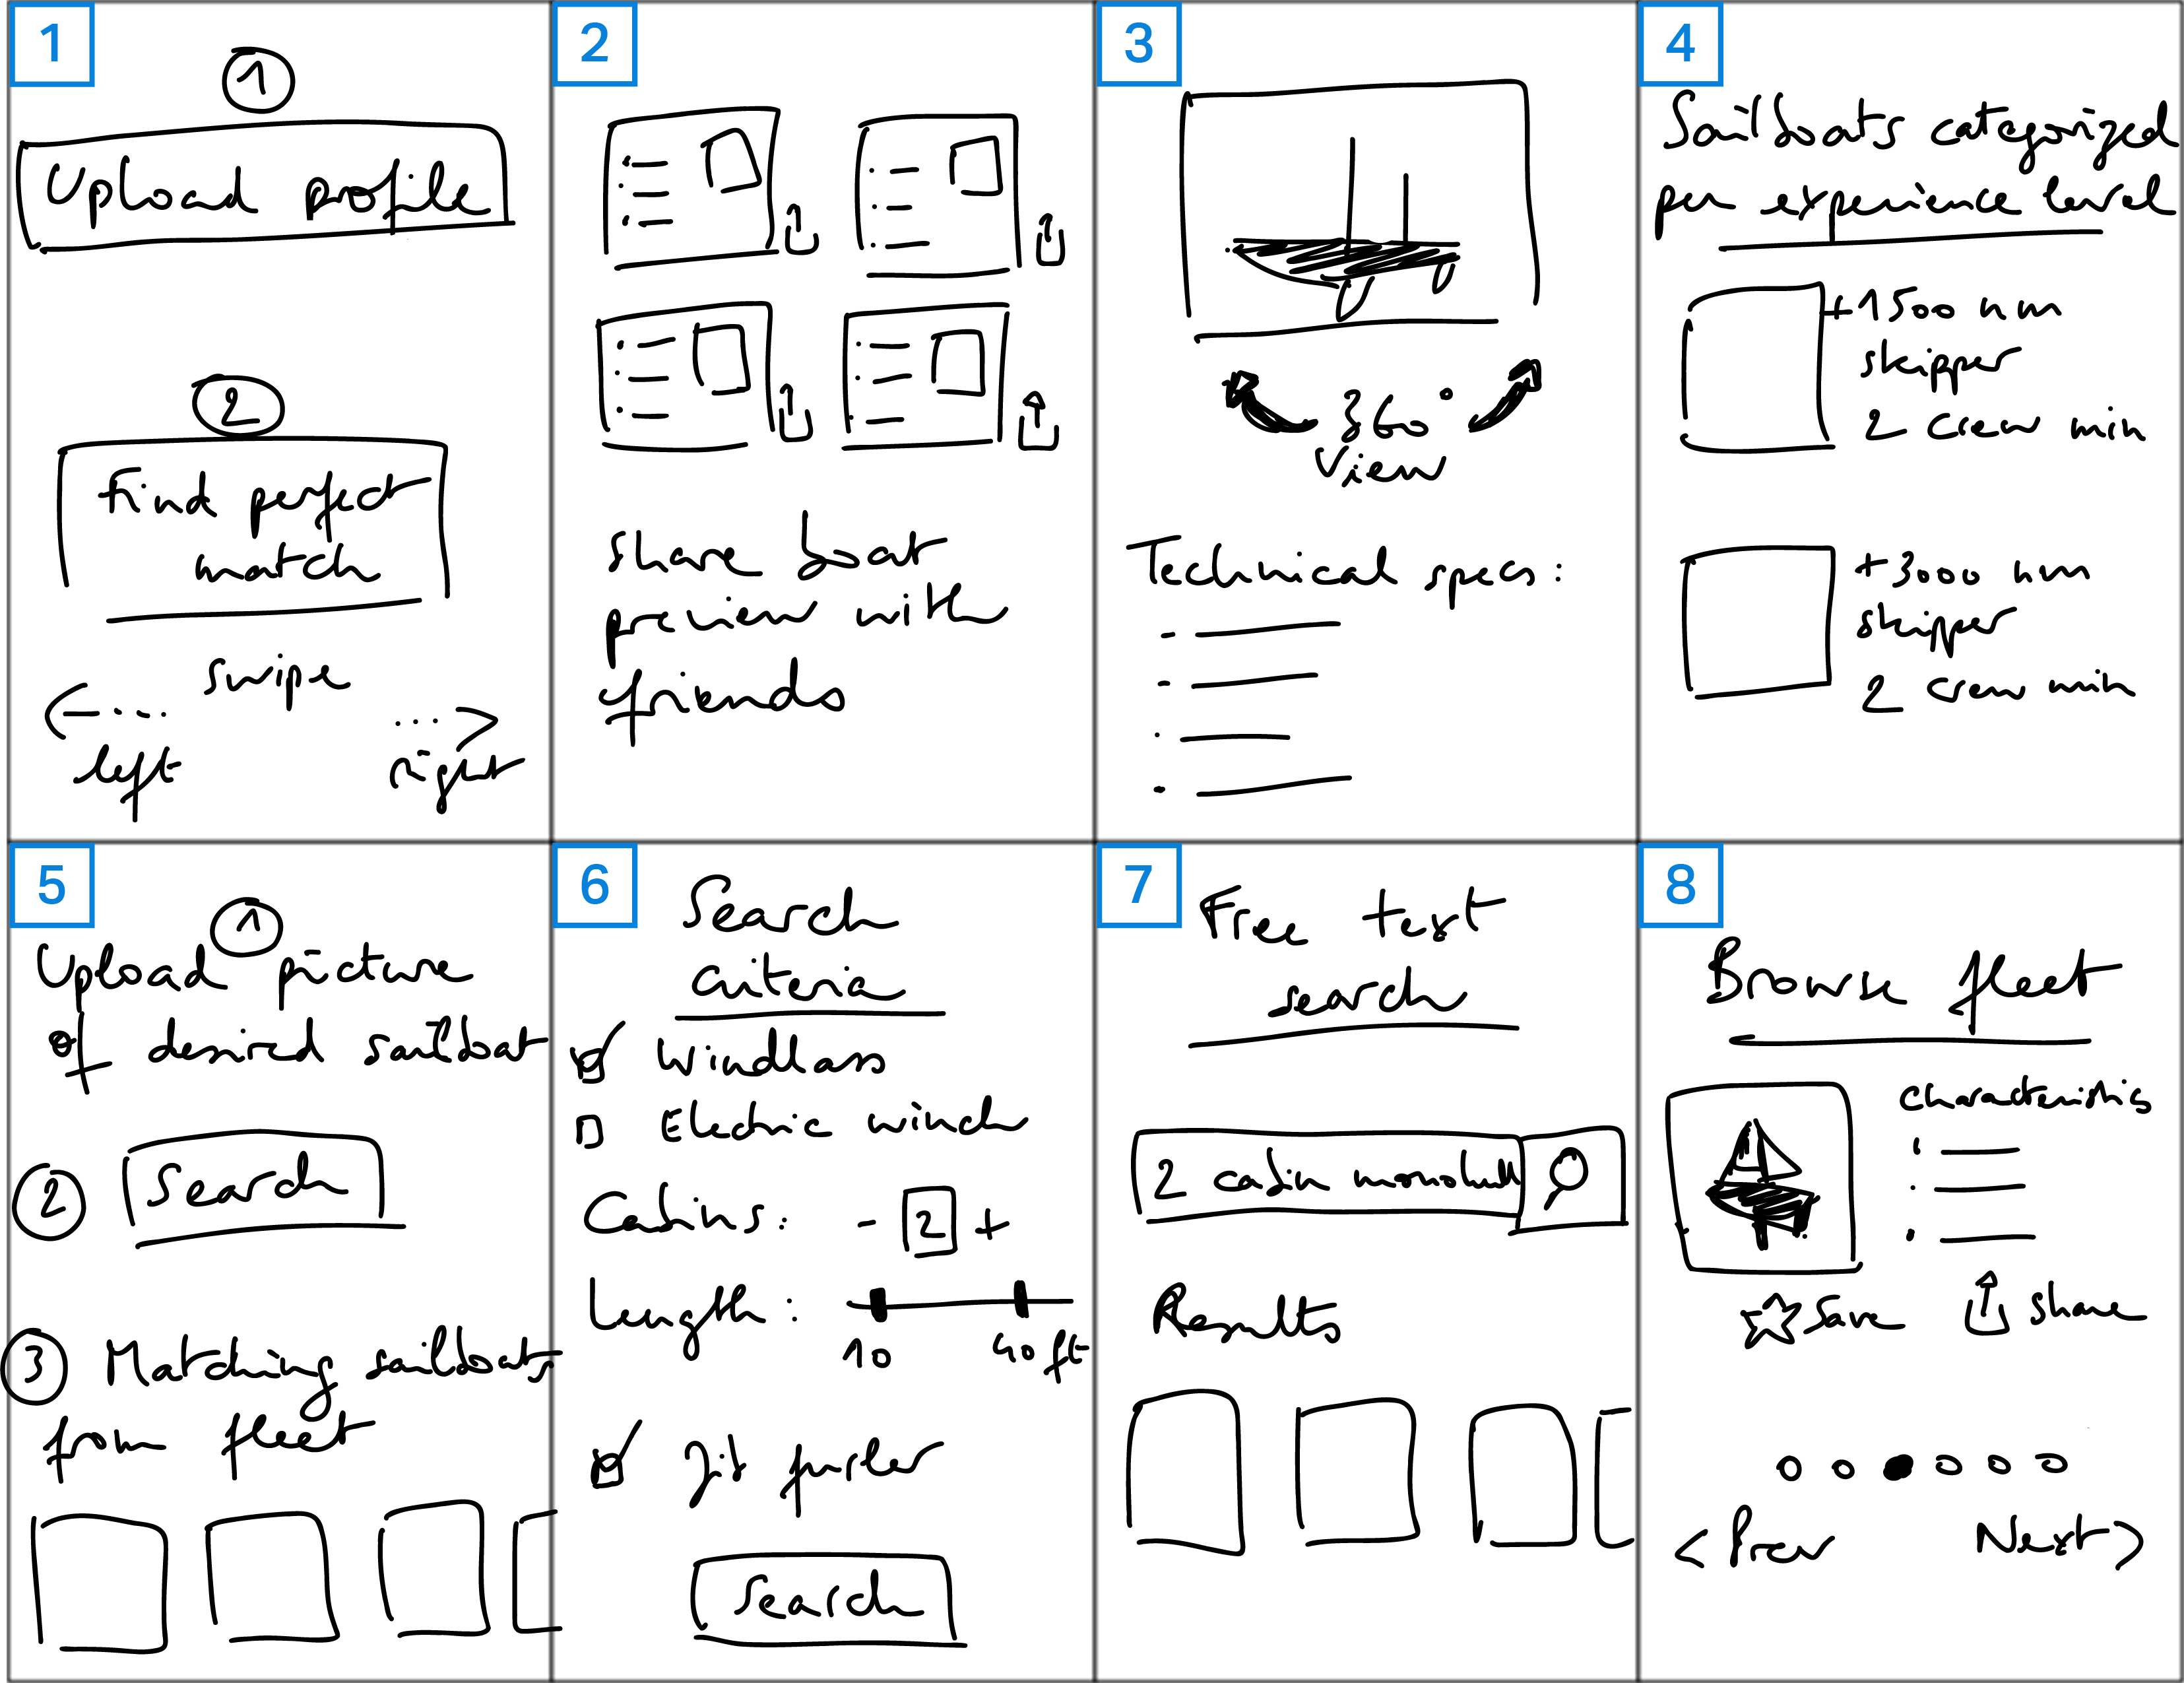 1
1
Upload profile
2
Find perfect
match
swipe
left
right
2
share boat
preview with
friends
3
360°
view
Technical specs:
4
Sailboats categorized
per experience level
+1500 nm
skipper
2 crew min
+3000 nm
skipper
2 crew min
5
1
Upload picture
of desired sailboat
2
Search
3 Matching sailboats
from fleet
6
Search
criteria
Windlass
Electric winch
Cabins: - 2 +
Length:
10 40 ft
Jib furler
Search
7
Free text
search
2 cabin monohull
Results
8
Browse fleet
characteristics
Save share
< Prev Next >